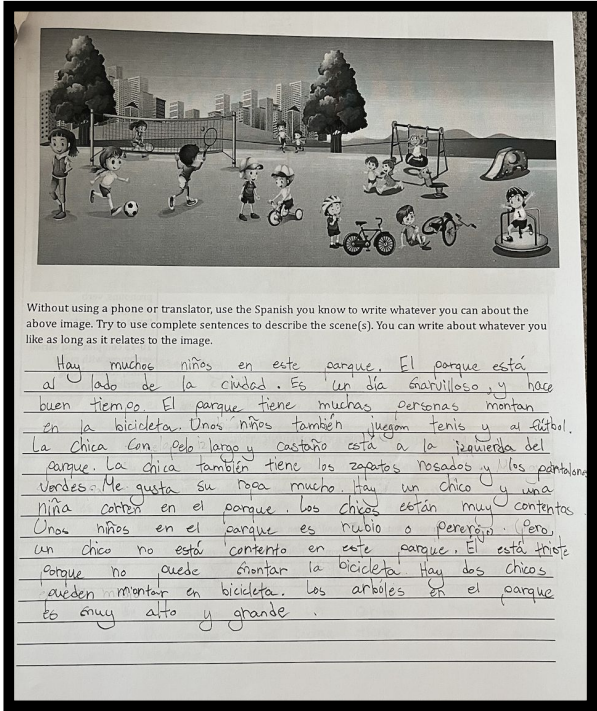 Without using a phone or translator, use the Spanish you know to write whatever you can about the
above image. Try to use complete sentences to describe the scene(s). You can write about whatever you
like as long as it relates to the image.
Hay muchos niños en este parque. El parque está
al lado de la ciudad. Es un día marvilloso, y hace
buen tiempo. El parque tiene muchas personas montan
en la bicicleta. Unos niños también juegan tenis y al fútbol.
La chica con pelo largo y castaño está a la izquierda del
parque. La chica también tiene los zapatos rosados y los pantalones
verdes. Me gusta su ropa mucho. Hay un chico y una
niña corren en el parque. Los chicos están muy contentas
Unos niños en el parque es rubio o pererojo. Pero,
un chico no está contento en este parque. Él está triste
porque no puede montar la bicicleta. Hay dos chicos
pueden montar en bicicleta. Los arbóles en el parque
es muy alto y grande.